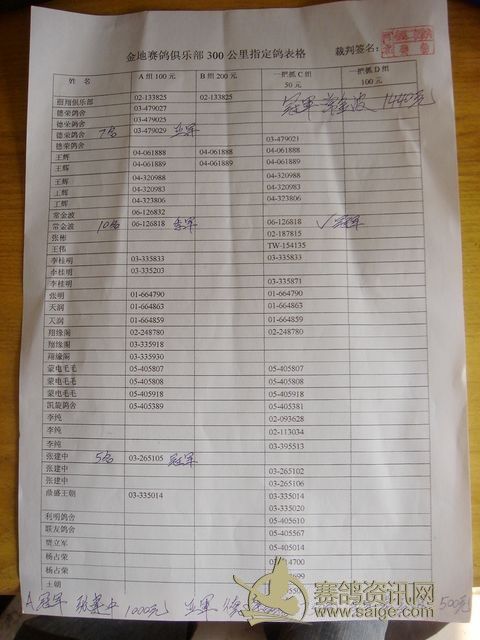 金地赛鸽俱乐部 300 公里指定鸽表格
裁判签名:
姓 名 A组 100元 B组 200元 一把抓C组 50元 一把抓D组 100元
翱翔俱乐部 02-133825 02-133825
德荣鸽舍 03-479027 冠军 常金波 1440元
德荣鸽舍 03-479025
德荣鸽舍 7名 03-479029 亚军
德荣鸽舍 03-479021
王辉 04-061888 04-061888 04-061888
王辉 04-061889 04-061889 04-061889
王辉 04-320988 04-320988
王辉 04-320983 04-320983
王辉 04-323806 04-323806
常金波 06-126832
常金波 10名 06-126818 季军 06-126818 √冠军
张彬 02-187815
王伟 TW-154135
李桂明 03-335833 03-335833
李桂明 03-335203
李桂明 03-335871
张明 01-664790 01-664790
天润 01-664863 01-664863
天润 01-664859 01-664859
翔缘阁 02-248780 02-248780
翔缘阁 03-335918
翔缘阁 03-335930
蒙电毛毛 05-405807 05-405807
蒙电毛毛 05-405808 05-405808
蒙电毛毛 05-405918 05-405918
凯旋鸽舍 05-405389 05-405381
李纯 02-093628
李纯 02-113034
李纯 03-395513
张建中 5名 03-265105 冠军
张建中 03-265102
张建中 03-265106
鼎盛王朝 03-335014 03-335014
03-335020
利明鸽舍 05-405610
联友鸽舍 05-405567
贾立军 05-405014
杨占荣 14700
杨占荣 5699
王朝
A 冠军 张建中 1000元 亚军 德 500元
赛鸽资讯网
www.saige.com